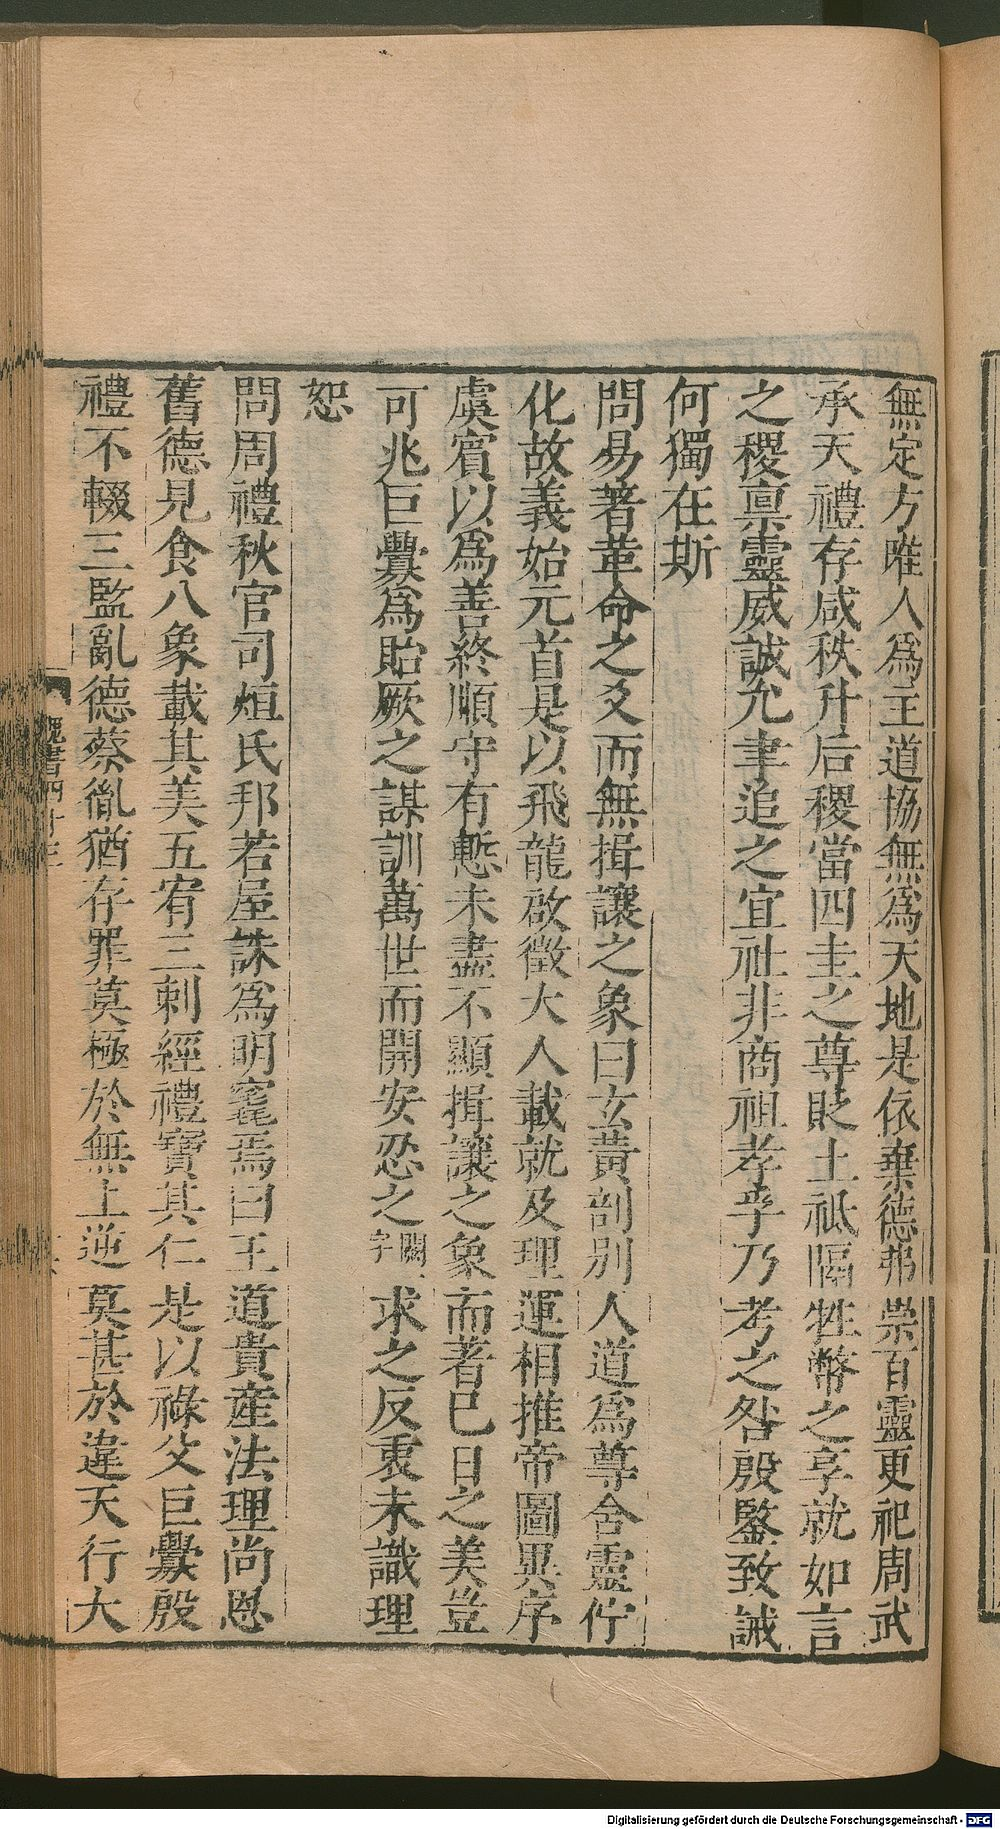 無定方唯人爲主道協無爲天地是依棄德弗崇百靈更祀周武
承天禮存咸秩升后稷當四圭之尊貶土祗隔牲幣之享就如言
之稷禀靈威誠允聿追之宜社非商祖孝乎乃考之咎殷鑒致誡
何獨在斯
問易著革命之爻而無揖讓之象曰玄黃剖別人道爲尊含靈佇
化故義始元首是以飛龍啟徵大人載就及理運相推帝圖異序
虞賓以爲善終順守有慙未盡不顯揖讓之象而著巳日之美豈
可兆巨釁爲貽厥之謀訓萬世而開安忍之闕字求之反衷未識理
恕
問周禮秋官司烜氏邦若屋誅爲明竁焉曰王道貴產法理尚恩
舊德見食八象載其美五宥三刺經禮寶其仁是以祿父巨釁殷
禮不輟三監亂德蔡胤猶存罪莫極於無上逆莫甚於違天行大
魏書四十三
Digitalisierung gefördert durch die Deutsche Forschungsgemeinschaft - DFG